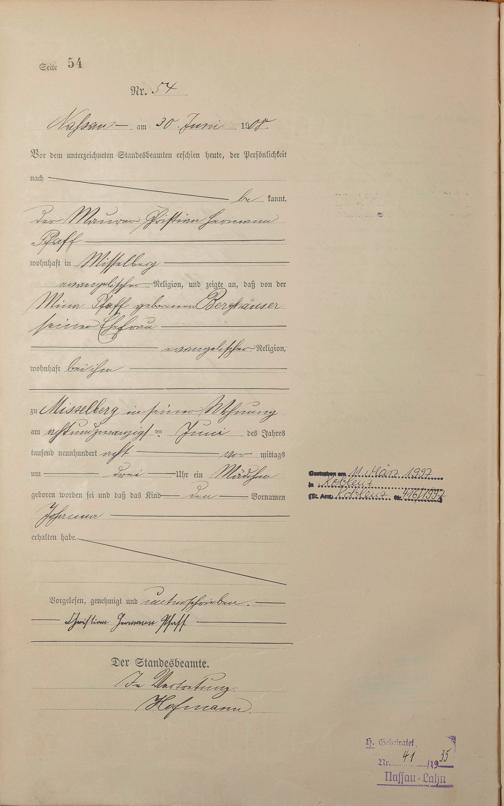 Seite 54
Nr. 54
Nassau am 30 Juni 1908.
Vor dem unterzeichneten Standesbeamten erschien heute, der Persönlichkeit
nach
be kannt.
der Maurer Christian Hermann
Pfaff
wohnhaft in Misselberg
evangelischer Religion, und zeigte an, daß von der
Mina Pfaff geborenen Berghäuser
seiner Ehefrau
evangelischer Religion,
wohnhaft bei ihm
zu Misselberg in seiner Wohnung
am achtundzwanzigsten Juni des Jahres
tausend neunhundert acht vor mittags
um drei Uhr ein Mädchen
geboren worden sei und daß das Kind den Vornamen
Johanna
erhalten habe.
Vorgelesen, genehmigt und unterschrieben.
Christian Hermann Pfaff
Der Standesbeamte.
In Vertretung
Hofmann
Gestorben am 11. März 1997
in Koblenz
(St. Amt Koblenz Nr. /1997
H. Geheiratet
Nr. 41 /1935
Nassau-Lahn